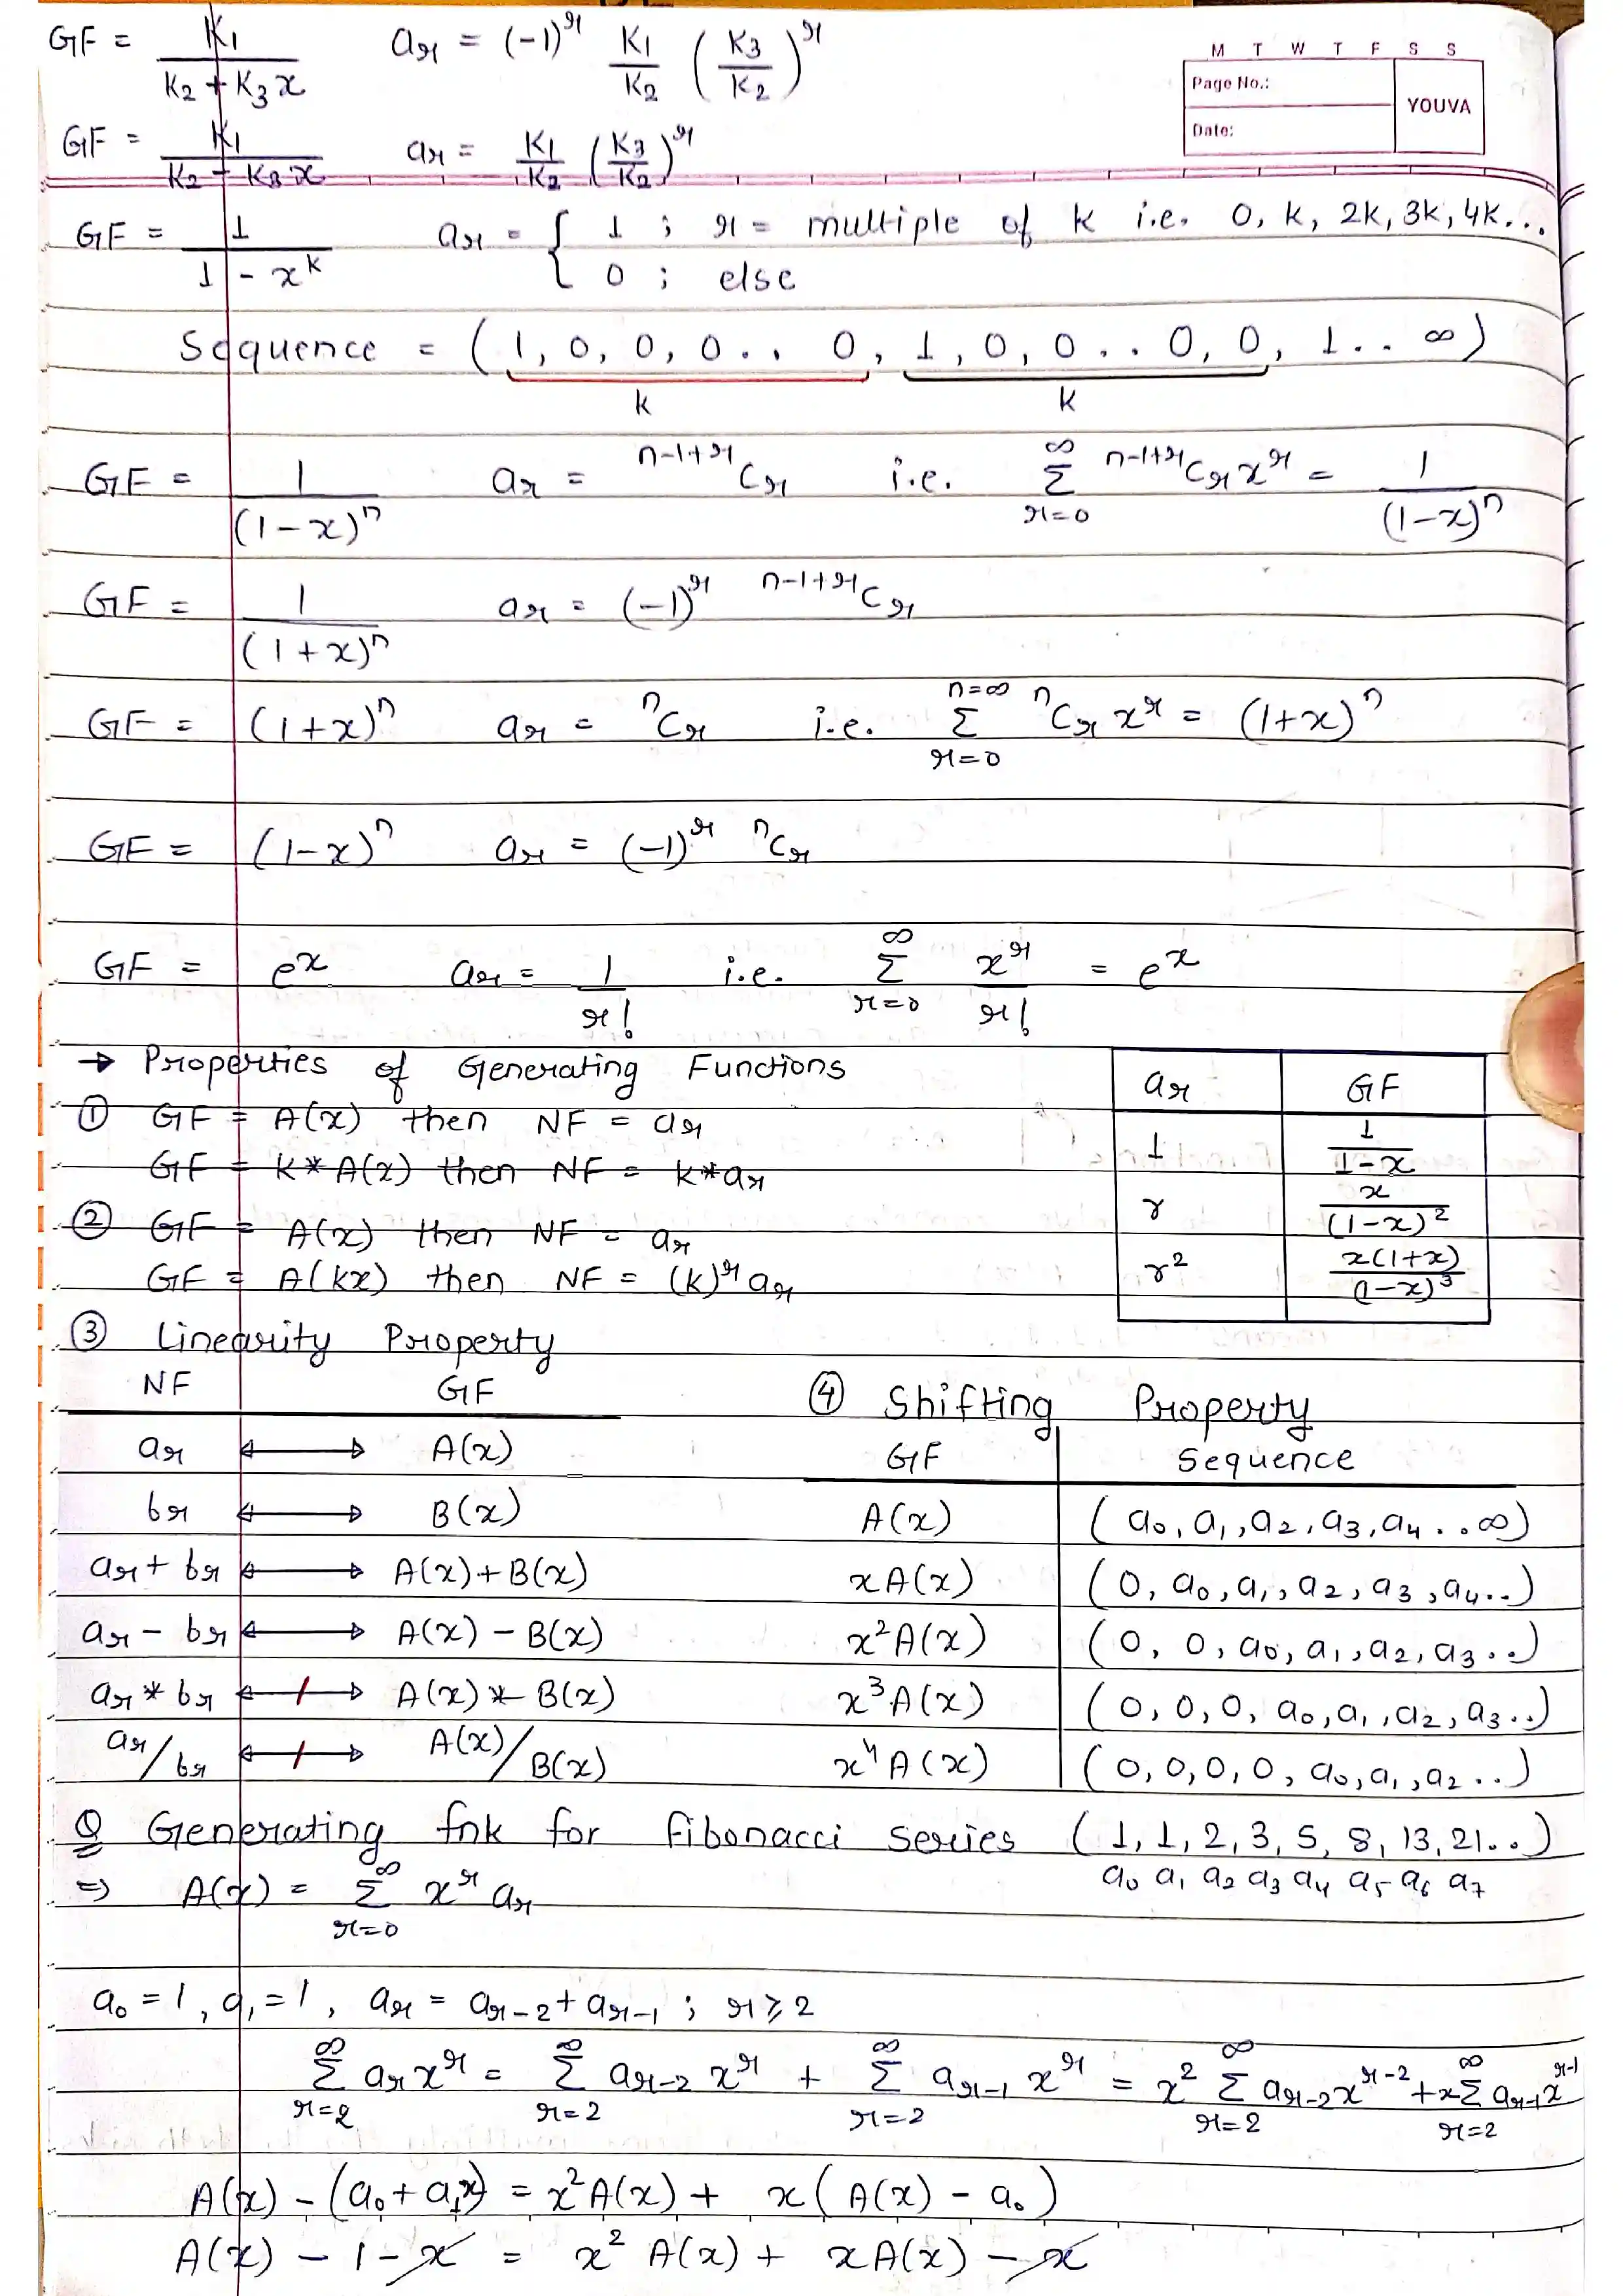 GF = K1/(K2 + K3x)    ar = (-1)^r K1/K2 (K3/K2)^r
M T W T F S S
Page No.:
YOUVA
Date:
GF = K1/(K2 - K3x)    ar = K1/K2 (K3/K2)^r
GF = 1/(1 - x^k)    ar = { 1 ; r = multiple of k i.e. 0, k, 2k, 3k, 4k...
0 ; else
Sequence = (1, 0, 0, 0.. 0, 1, 0, 0.. 0, 0, 1.. ∞)
k    k
GF = 1/(1-x)^n    ar = ^(n-1+r)Cr    i.e.    ∞Σr=0 ^(n-1+r)Cr x^r = 1/(1-x)^n
GF = 1/(1+x)^n    ar = (-1)^r ^(n-1+r)Cr
GF = (1+x)^n    ar = ^nCr    i.e.    n=∞Σr=0 ^nCr x^r = (1+x)^n
GF = (1-x)^n    ar = (-1)^r ^nCr
GF = e^x    ar = 1/r!    i.e.    ∞Σr=0 x^r/r! = e^x
→ Properties of Generating Functions
① GF = A(x) then NF = ar
GF = K*A(x) then NF = k*ar
② GF = A(x) then NF = ar
GF = A(kx) then NF = (k)^r ar
ar    GF
1    1/(1-x)
r    x/(1-x)^2
r^2    x(1+x)/(1-x)^3
③ Linearity Property
NF    GF
ar ↔ A(x)
br ↔ B(x)
ar + br ↔ A(x)+B(x)
ar - br ↔ A(x) - B(x)
ar * br ↮ A(x) * B(x)
ar/br ↮ A(x)/B(x)
④ Shifting Property
GF    Sequence
A(x)    (a0, a1, a2, a3, a4..∞)
xA(x)    (0, a0, a1, a2, a3, a4..)
x^2A(x)    (0, 0, a0, a1, a2, a3..)
x^3A(x)    (0, 0, 0, a0, a1, a2, a3..)
x^4A(x)    (0, 0, 0, 0, a0, a1, a2..)
Q Generating fnk for fibonacci series (1, 1, 2, 3, 5, 8, 13, 21..)
a0 a1 a2 a3 a4 a5 a6 a7
⇒ A(x) = ∞Σr=0 x^r ar
a0 = 1, a1 = 1, ar = ar-2 + ar-1 ; r ≥ 2
∞Σr=2 ar x^r = ∞Σr=2 ar-2 x^r + ∞Σr=2 ar-1 x^r = x^2 ∞Σr=2 ar-2 x^(r-2) + x ∞Σr=2 ar-1 x^(r-1)
A(x) - (a0 + a1x) = x^2A(x) + x(A(x) - a0)
A(x) - 1 - x = x^2 A(x) + xA(x) - x